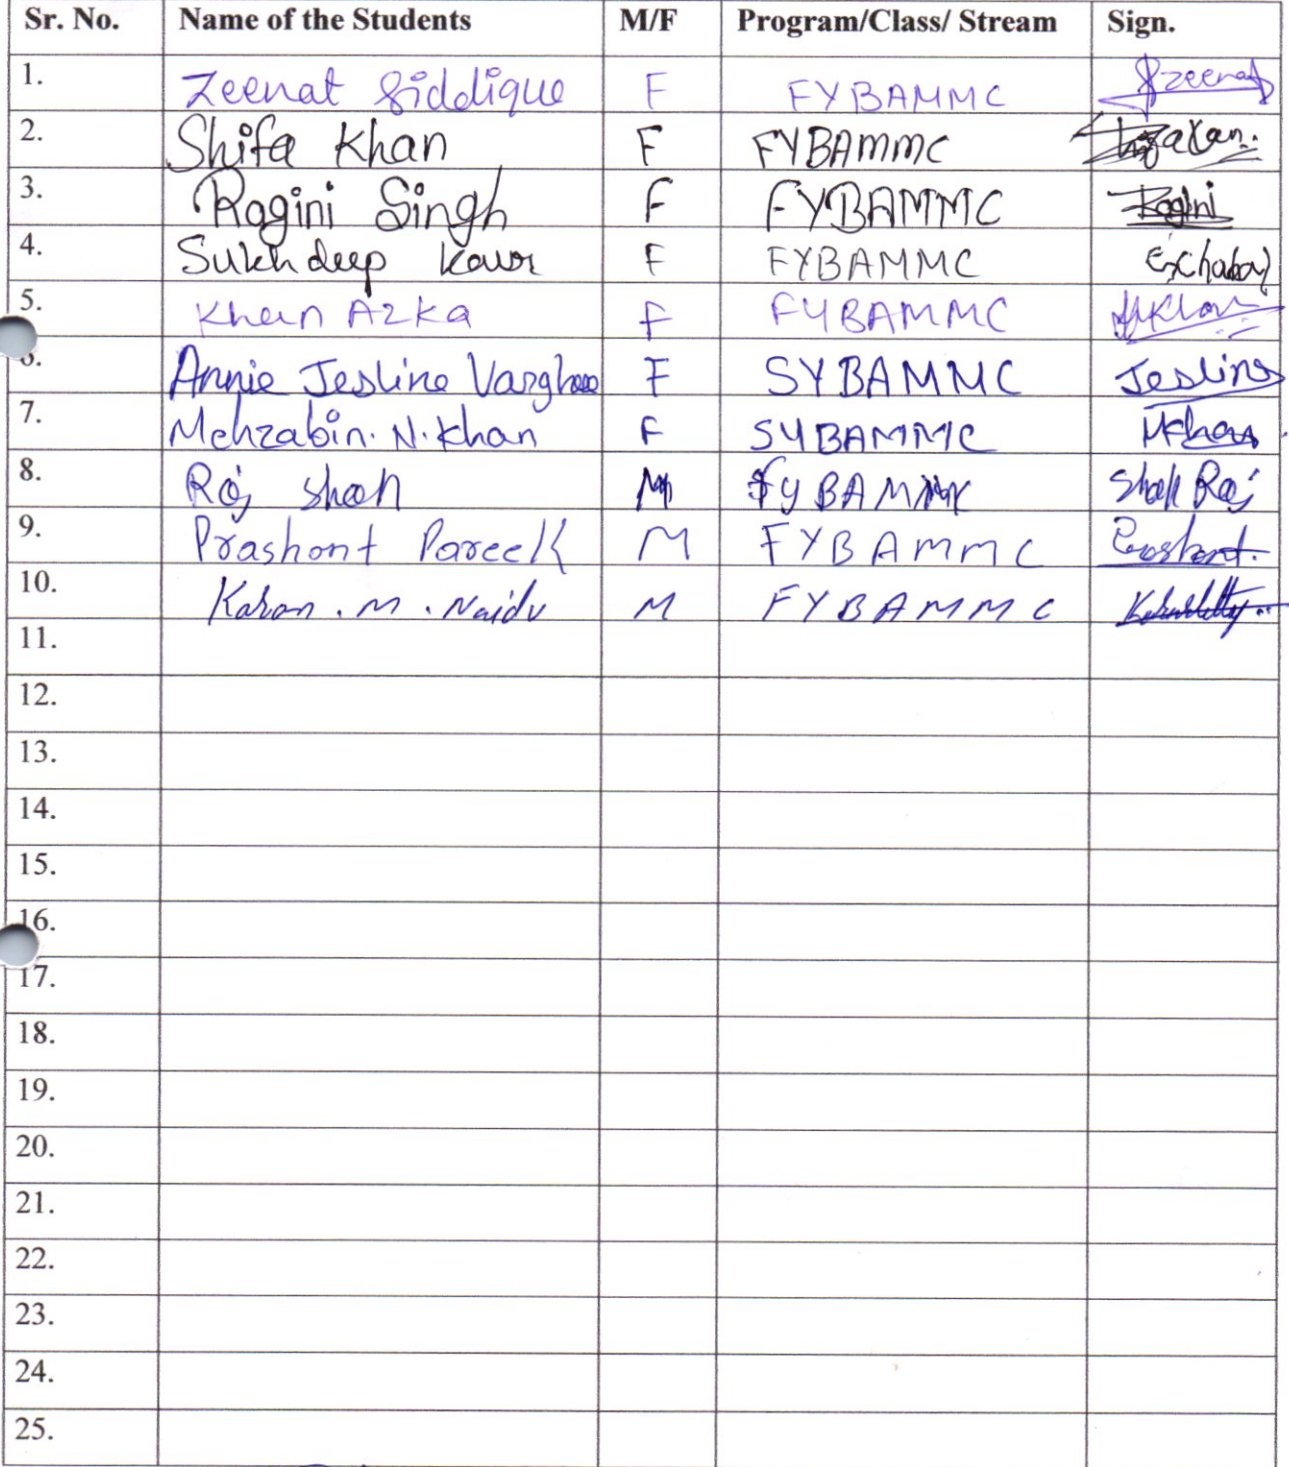 Sr. No. Name of the Students M/F Program/Class/ Stream Sign.
1. Zeenat Siddique F FYBAMMC Szeenat
2. Shifa Khan F FYBAMMC
3. Ragini Singh F FYBAMMC Ragini
4. Sukhdeep Kaur F FYBAMMC
5. Khan Azka F FYBAMMC AKhan
6. Annie Jesline Varghese F SYBAMMC Jesline
7. Mehzabin. N. Khan F SYBAMMC MKhan
8. Raj Shah M FYBAMMC Shah Raj
9. Prashant Pareek M FYBAMMC Prashant.
10. Karan . M . Naidu M FYBAMMC
11.
12.
13.
14.
15.
16.
17.
18.
19.
20.
21.
22.
23.
24.
25.